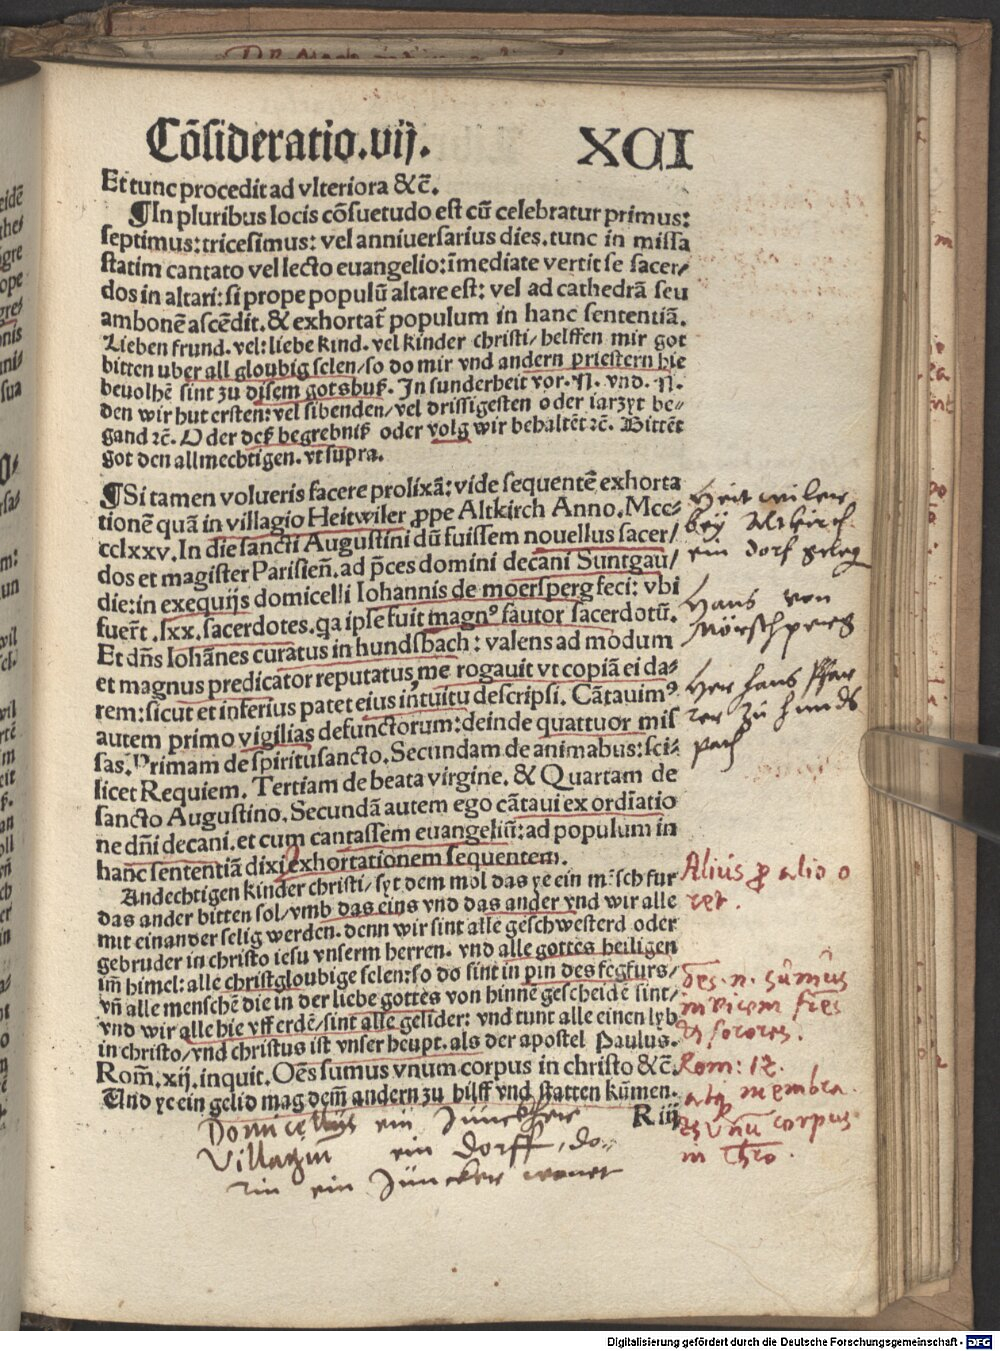 Cōsideratio.vij. XCI
Et tunc procedit ad vlteriora &c̄.
¶In pluribus locis cōsuetudo est cū celebratur primus:
septimus: tricesimus: vel anniuersarius dies. tunc in missa
statim cantato vel lecto euangelio: īmediate vertit se sacer/
dos in altari: si prope populū altare est: vel ad cathedrā seu
ambonē ascēdit. & exhortat̄ populum in hanc sententiā.
Lieben frund. vel: liebe kind. vel kinder christi/ helffen mir got
bitten uber all gloubig selen/ so do mir vnd andern priestern hie
beuolhē sint zu disem gotshuß. In sunderheit vor .N. vnd. N.
den wir hut ersten: vel sibenden/ vel drissigesten oder iarzyt be⸗
gand ⁊c̄. Oder deß begrebniß oder volg wir behaltēt ⁊c̄. Bittēt
got den allmechtigen. vt supra.
¶Si tamen volueris facere prolixā: vide sequentē exhorta
tionē quā in villagio Heitwiler ꝓpe Altkirch Anno. Mcc⸗
cclxxv. In die sancti Augustini dū fuissem nouellus sacer/
dos et magister Parisieñ. ad p̄ces domini decani Suntgau/
die: in exequijs domicelli Iohannis de moersperg feci: vbi
fuert̄ .lxx. sacerdotes. qa ipse fuit magn⁹ fautor sacerdotū.
Et dñs Iohānes curatus in hundsbach: valens ad modum
et magnus predicator reputatus, me rogauit vt copiā ei da⸗
rem: sicut et inferius patet eius intuitu descripsi. Cātauim⁹
autem primo vigilias defunctorum: deinde quattuor mis
sas. Primam de spiritusancto. Secundam de animabus: sci⸗
licet Requiem. Tertiam de beata virgine. & Quartam de
sancto Augustino. Secundā autem ego cātaui ex ordīatio
ne dñi decani. et cum cantassem euangeliū: ad populum in
hanc sententiā dixi exhortationem sequentem.
Andechtigen kinder christi/ syt dem mol das ye ein mēsch fur
das ander bitten sol/ vmb das eins vnd das ander vnd wir alle
mit einander selig werden. denn wir sint alle geschwesterd oder
gebruder in christo iesu vnserm herren. vnd alle gottes heiligen
im̄ himel: alle christgloubige selen: so do sint in pin des fegfurs/
vn̄ alle menschē die in der liebe gottes von hinnē gescheidē sint/
vnd wir alle hie vff erdē/ sint alle gelider: vnd tunt alle einen lyb
in christo/ vnd christus ist vnser heupt. als der apostel Paulus.
Rom̄. xij. inquit. Oēs sumus vnum corpus in christo &c̄.
Und ye ein gelid mag dem̄ andern zu hilff vnd statten kūmen.
R iij
Heit wiler
bey Altkirch
ein dorf geleg
Hans von
Mörschperg
Her hans Pfar
rer zu hunds
pach
Alius ꝓ alio o
ret.
Oēs .n. sumus
invicem fr̄es
et sorores.
Rom: 12.
membra
et vnū corpus
in Chr̄o.
Domicellus ein Junckher
Villagium ein dorff, do⸗
rin ein Juncker wonet